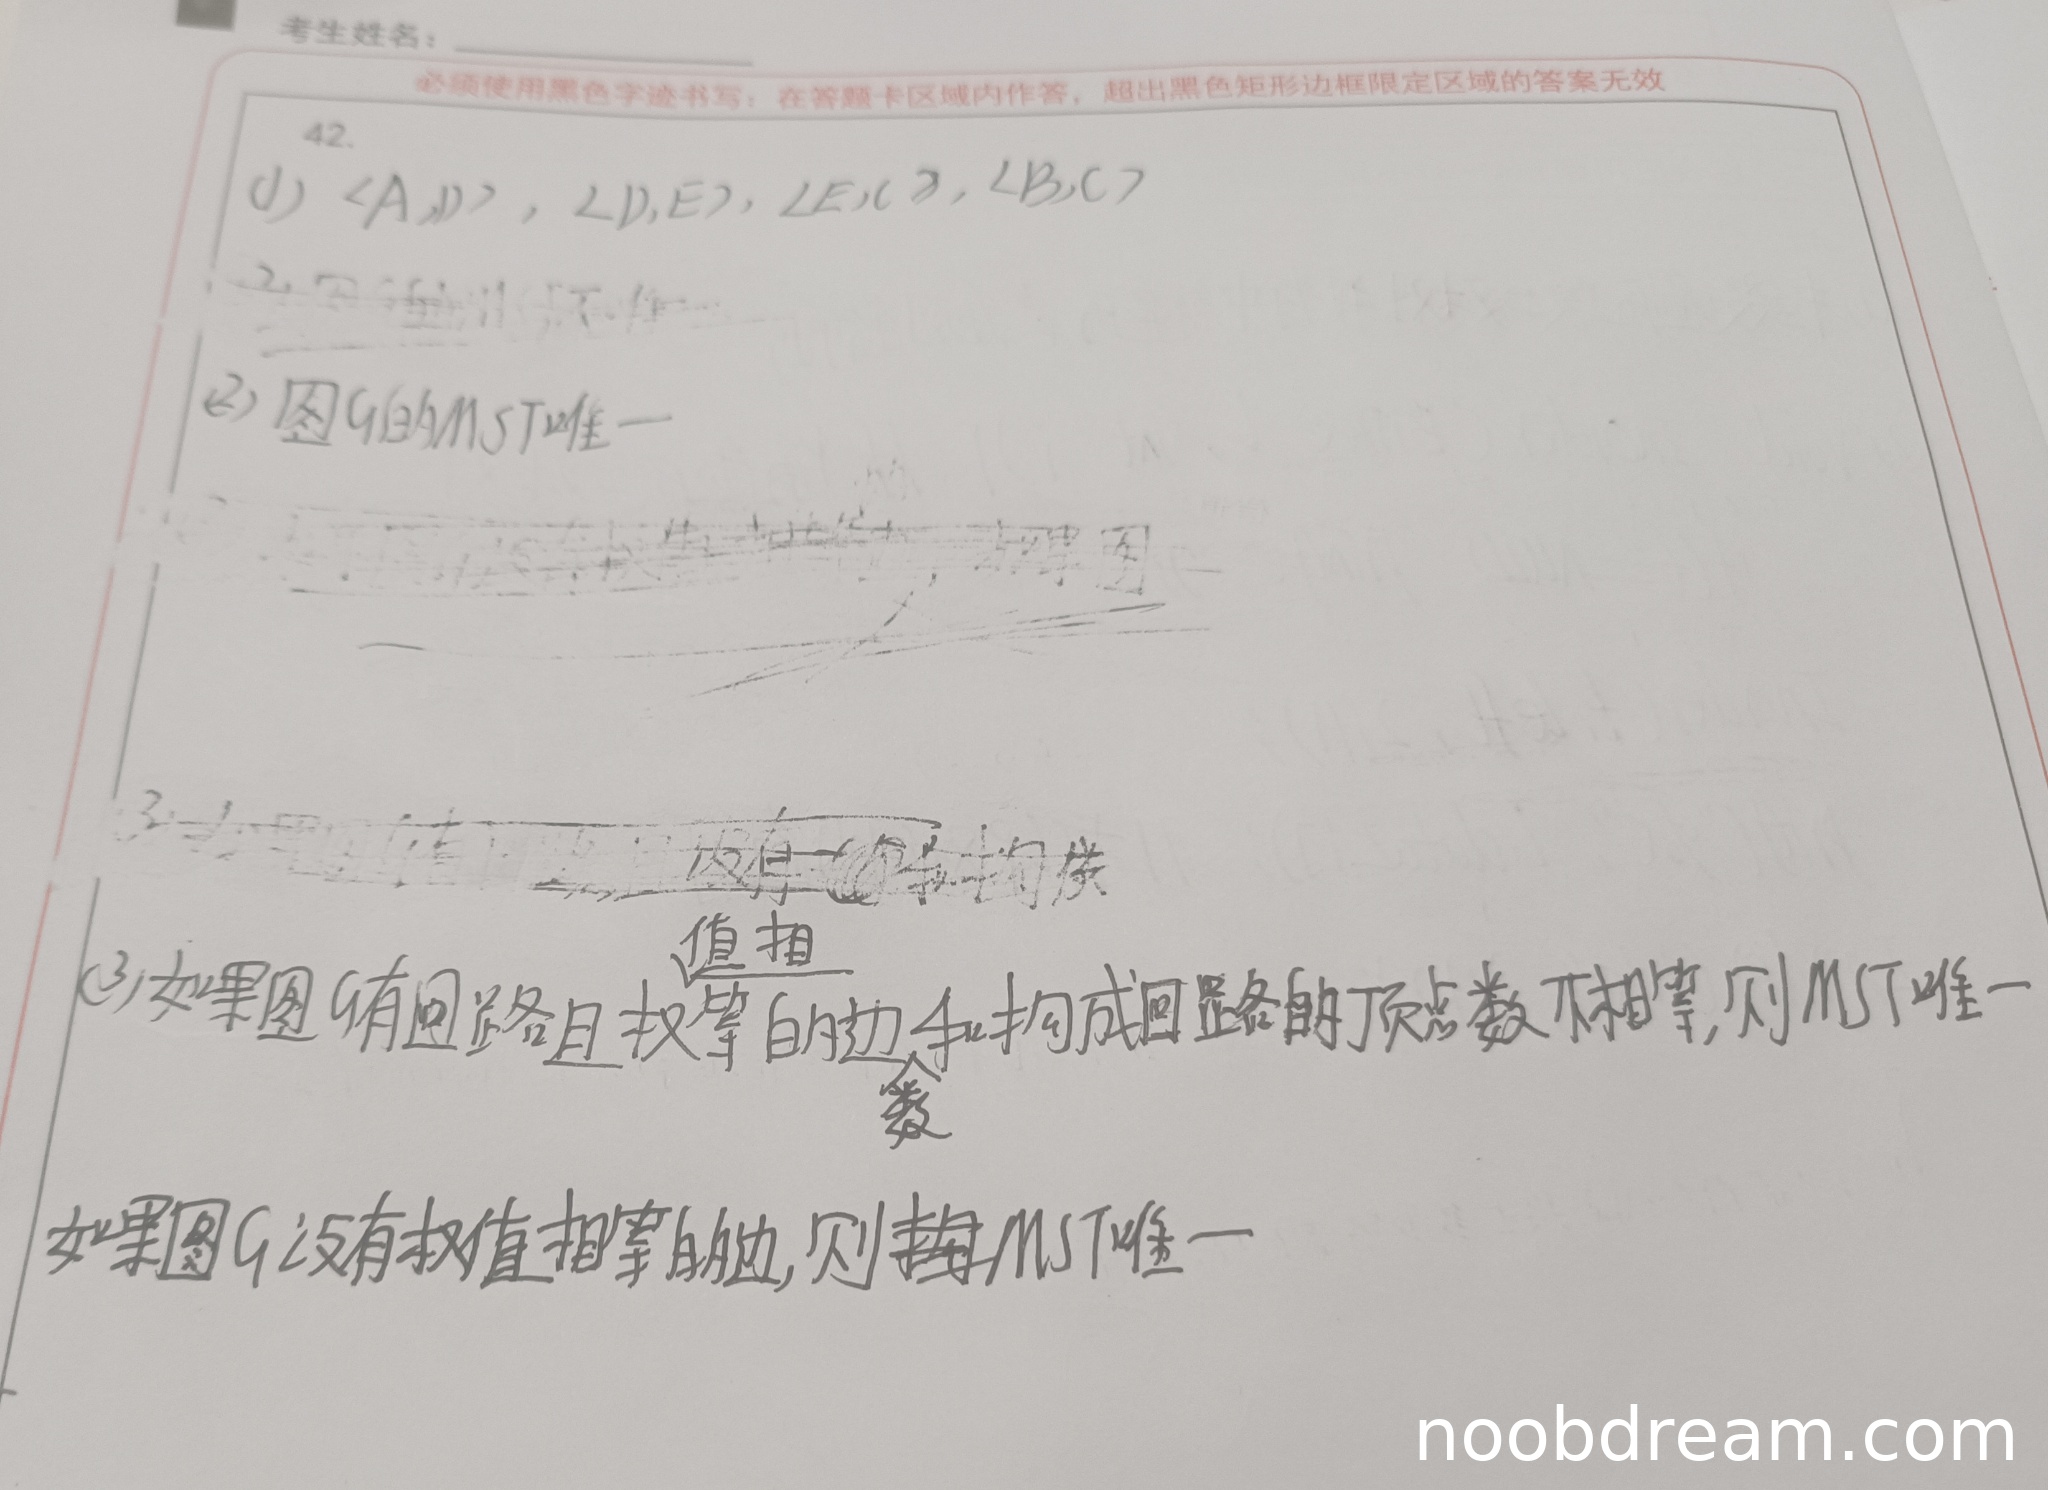 考生姓名：
必须使用黑色字迹书写；在答题卡区域内作答，超出黑色矩形边框限定区域的答案无效
42.
(1) <A,D>, <D,E>, <E,C>, <B,C>
(2) 图G的MST唯一
值相
(3) 如果图G有回路且权等的边和构成回路的顶点数不相等,则MST唯一
数
如果图G没有权值相等的边,则MST唯一
noobdream.com